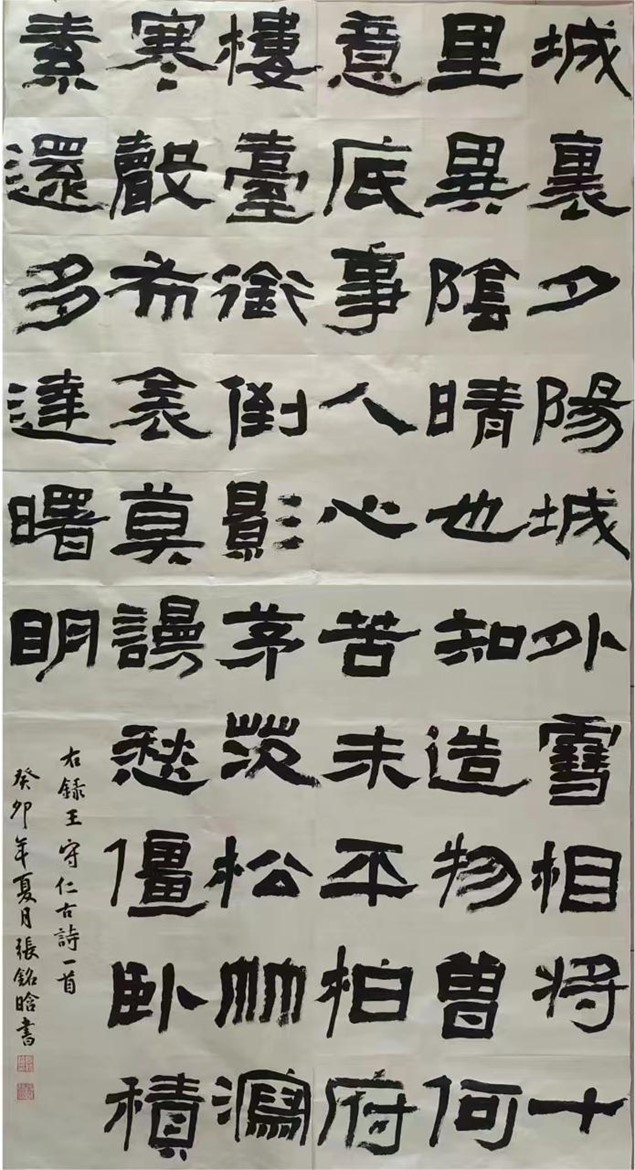 城裏夕陽城外雪相將十
里異陰晴也知造物曾何
意底事人心苦未平柏府
樓臺銜倒影茅茨松竹瀉
寒聲布衾莫謾愁僵臥積
素還多達曙明
右録王守仁古詩一首
癸卯年夏月張銘晗書